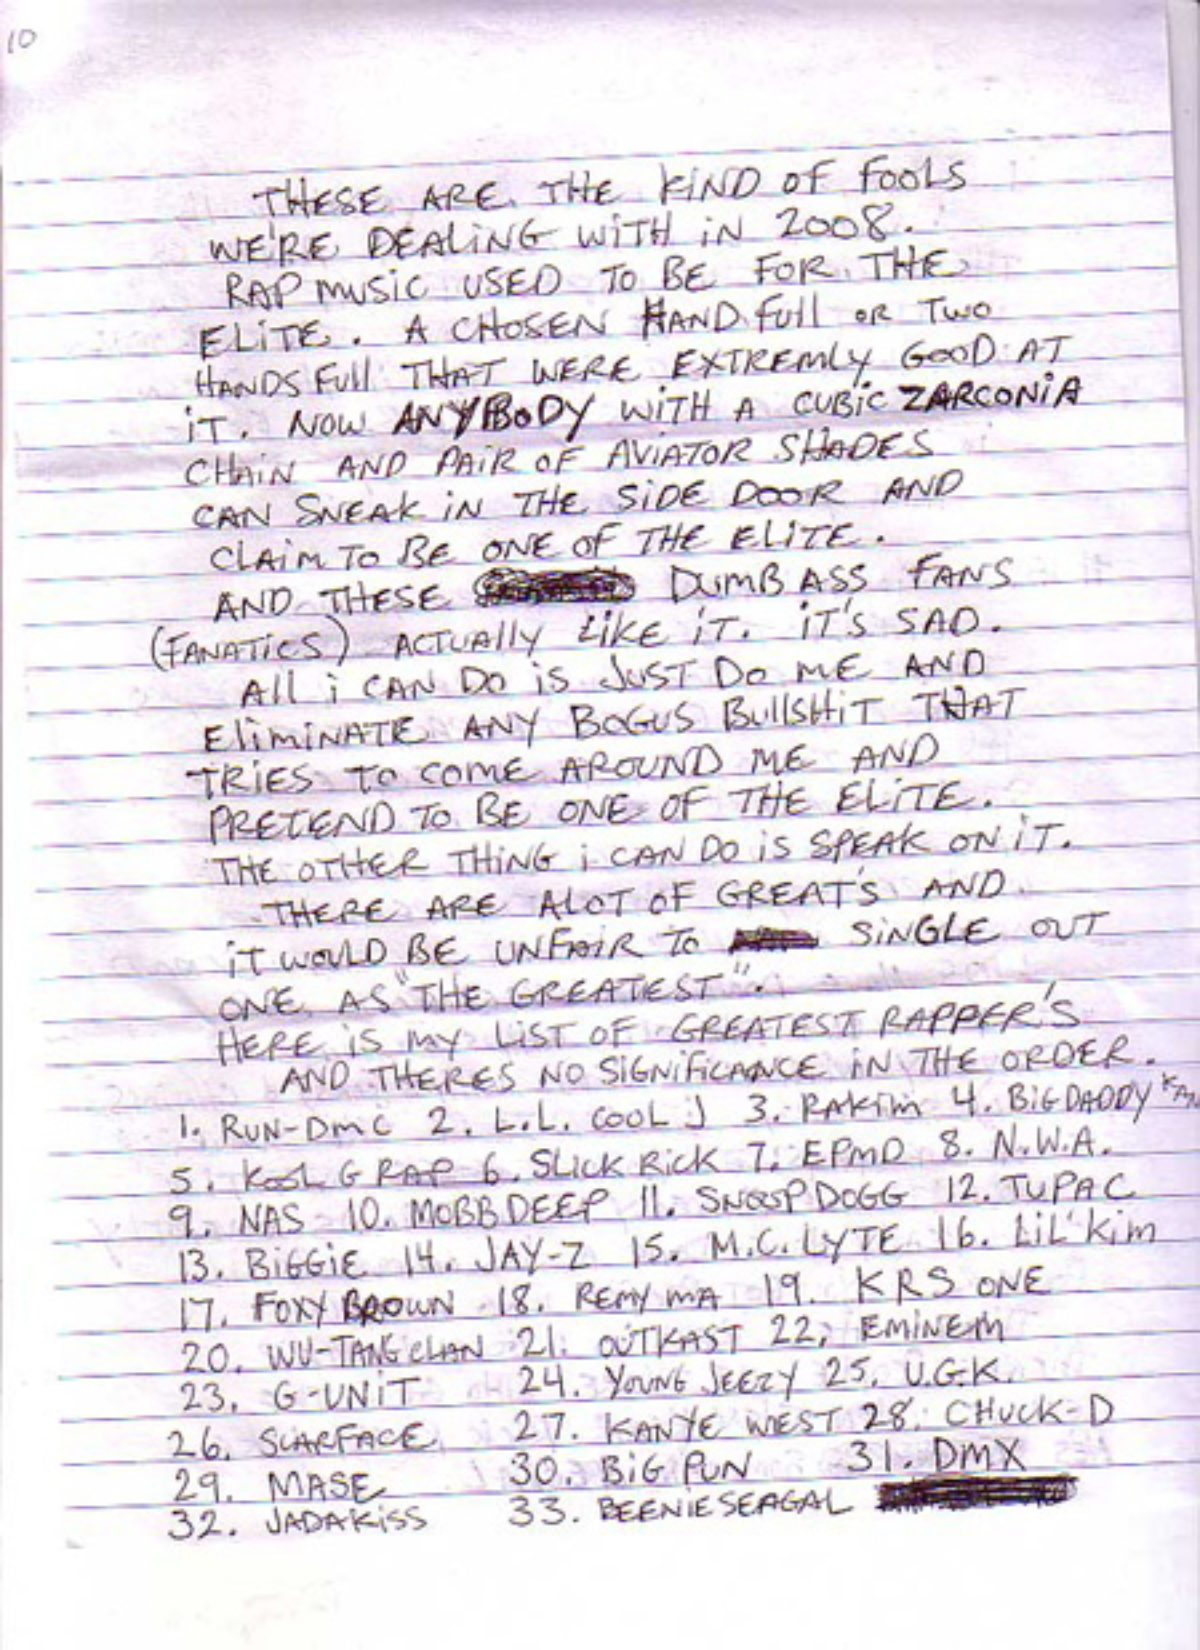 10
THESE ARE THE KIND OF FOOLS
WE'RE DEALING WITH IN 2008.
RAP MUSIC USED TO BE FOR THE
ELITE. A CHOSEN HAND FULL OR TWO
HANDS FULL THAT WERE EXTREMLY GOOD AT
IT. NOW ANYBODY WITH A CUBIC ZARCONIA
CHAIN AND PAIR OF AVIATOR SHADES
CAN SNEAK IN THE SIDE DOOR AND
CLAIM TO BE ONE OF THE ELITE.
AND THESE DUMB ASS FANS
(FANATICS) ACTUALLY LIKE IT. IT'S SAD.
ALL I CAN DO IS JUST DO ME AND
ELIMINATE ANY BOGUS BULLSHIT THAT
TRIES TO COME AROUND ME AND
PRETEND TO BE ONE OF THE ELITE.
THE OTHER THING I CAN DO IS SPEAK ON IT.
THERE ARE ALOT OF GREAT'S AND
IT WOULD BE UNFAIR TO SINGLE OUT
ONE AS "THE GREATEST".
HERE IS MY LIST OF GREATEST RAPPER'S
AND THERES NO SIGNIFICANCE IN THE ORDER.
1. RUN-DMC 2. L.L. COOL J 3. RAKIM 4. BIG DADDY
5. KOOL G RAP 6. SLICK RICK 7. EPMD 8. N.W.A.
9. NAS 10. MOBB DEEP 11. SNOOP DOGG 12. TUPAC
13. BIGGIE 14. JAY-Z 15. M.C. LYTE 16. LIL' KIM
17. FOXY BROWN 18. REMY MA 19. KRS ONE
20. WU-TANG CLAN 21. OUTKAST 22. EMINEM
23. G-UNIT 24. YOUNG JEEZY 25. U.G.K.
26. SCARFACE 27. KANYE WEST 28. CHUCK-D
29. MASE 30. BIG PUN 31. DMX
32. JADAKISS 33. BEENIE SEAGAL